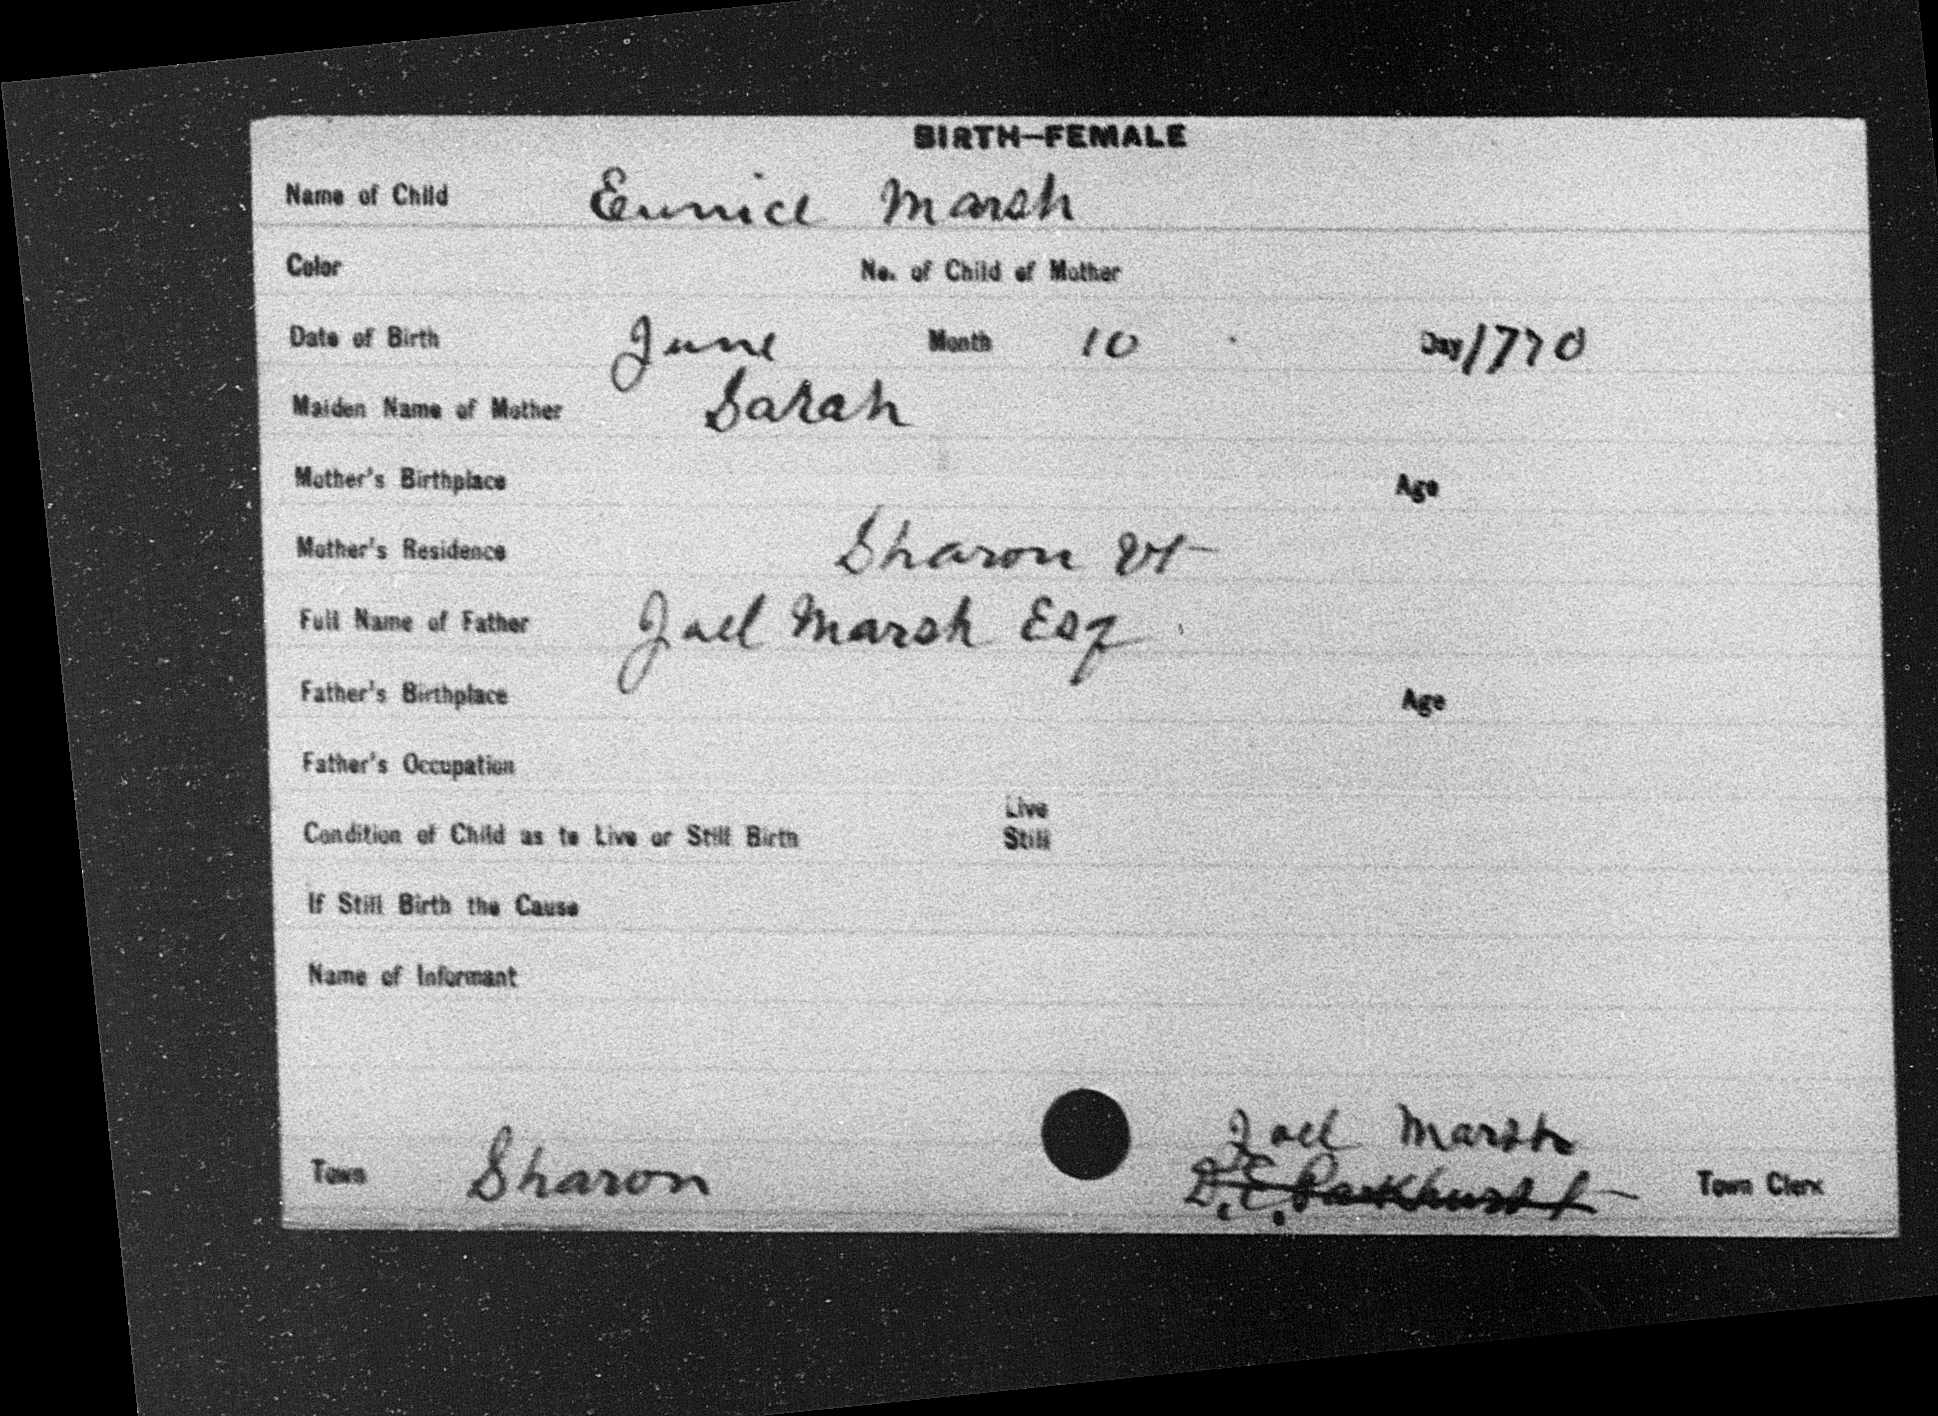 BIRTH—FEMALE
Name of Child Eunice Marsh
Color No. of Child of Mother
Date of Birth June Month 10 Day 1770
Maiden Name of Mother Sarah
Mother's Birthplace Age
Mother's Residence Sharon Vt
Full Name of Father Joel Marsh Esq
Father's Birthplace Age
Father's Occupation
Live
Condition of Child as to Live or Still Birth Still
If Still Birth the Cause
Name of Informant
Joel Marsh
Town Sharon D. E. Parkhurst Town Clerk